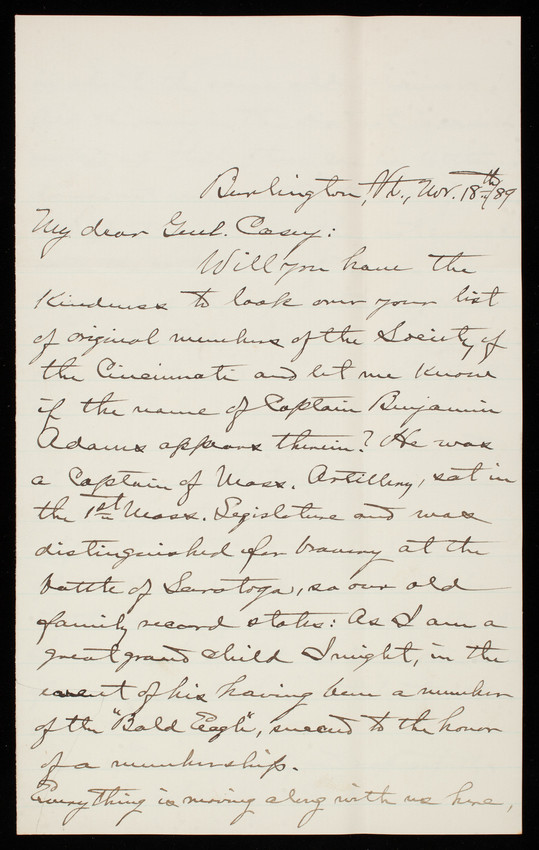 Burlington, Vt., Nov. 18th/89
My dear Genl. Casey:
Will you have the
Kindness to look over your list
of original members of the Society of
the Cincinnati and let me know
if the name of Captain Benjamin
Adams appears therein? He was
a Captain of Mass. Artillery, sat in
the 1st Mass. Legislature and was
distinguished for bravery at the
battle of Saratoga, so our old
family record states: As I am a
great grand child I might, in the
event of his having been a member
of the "Bald Eagle", succeed to the honor
of a membership.
Everything is moving along with us here,